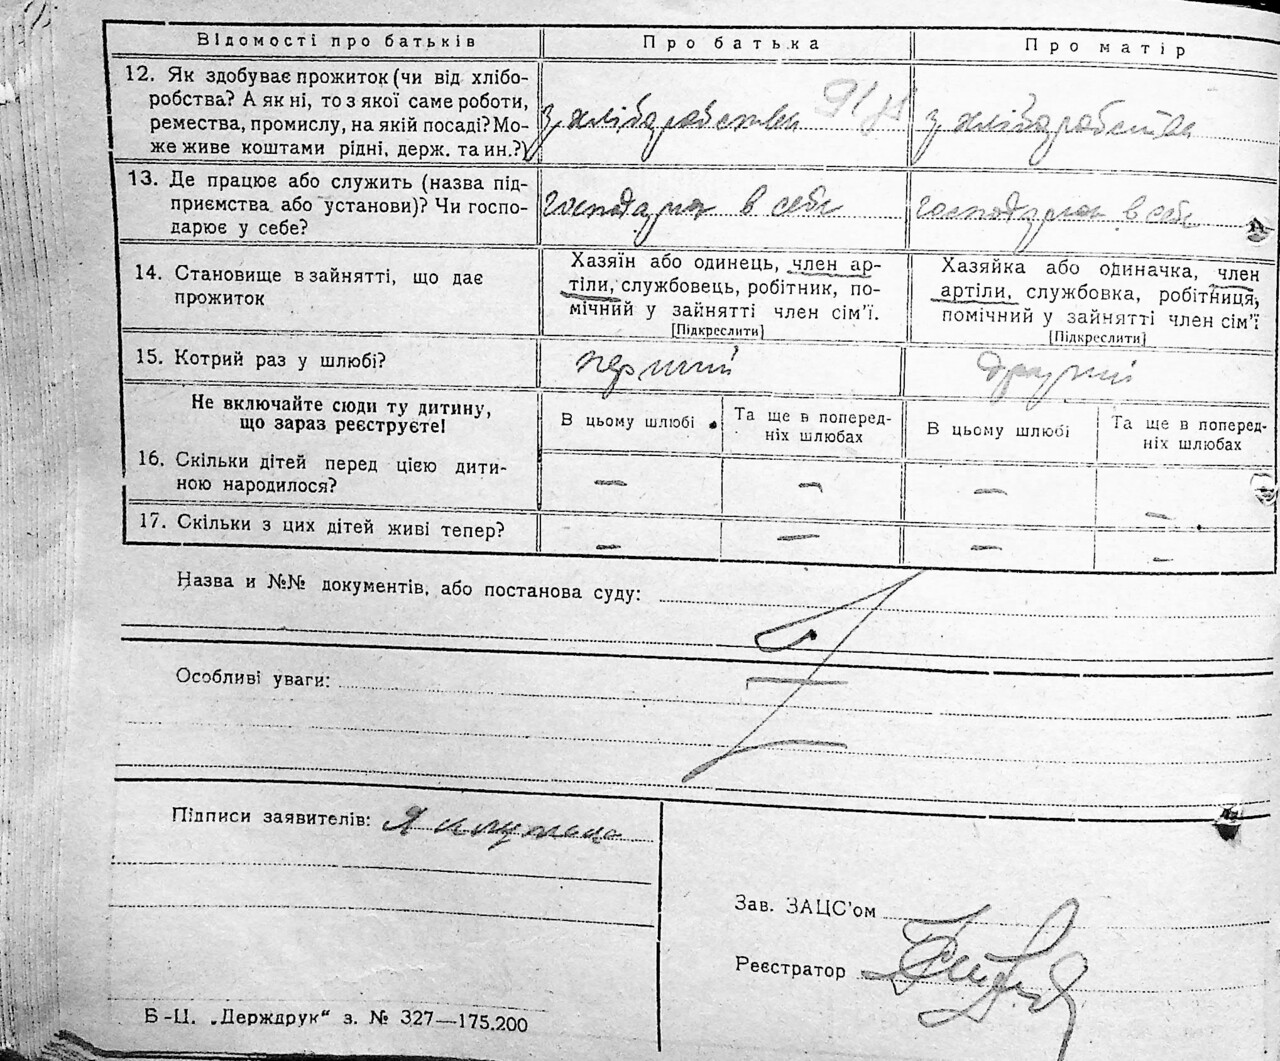 Відомості про батьків
Про батька
Про матір
12. Як здобуває прожиток (чи від хлібо-
робства? А як ні, то з якої саме роботи,
ремества, промислу, на якій посаді? Мо-
же живе коштами рідні, держ. та ин.?)
з хліборобства
з хліборобства
13. Де працює або служить (назва під-
приємства або установи)? Чи госпо-
дарює у себе?
господарює в себе
господарює в себе
14. Становище в зайнятті, що дає
прожиток
Хазяїн або одинець, член ар-
тіли, службовець, робітник, по-
мічний у зайнятті член сім’ї.
[Підкреслити]
Хазяйка або одиначка, член
артіли, службовка, робітниця,
помічний у зайнятті член сім’ї
[Підкреслити]
15. Котрий раз у шлюбі?
перший
другий
Не включайте сюди ту дитину,
що зараз реєструєте!
В цьому шлюбі
Та ще в поперед-
ніх шлюбах
В цьому шлюбі
Та ще в поперед-
ніх шлюбах
16. Скільки дітей перед цією дити-
ною народилося?
— — — —
17. Скільки з цих дітей живі тепер?
— — — —
Назва и №№ документів, або постанова суду:
Особливі уваги:
Підписи заявителів:
Зав. ЗАЦС’ом
Реєстратор
Б-Ц. „Держдрук“ з. № 327—175.200